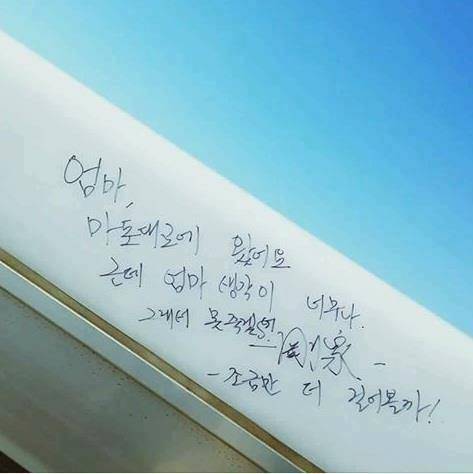 엄마,
마포대교에 왔어요
근데 엄마 생각이 너무나.
그래서 못죽겠어.
- 조금만 더 걸어볼까!